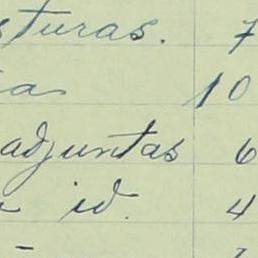 sturas. 7
ia 10
adjuntas 6
id. 4